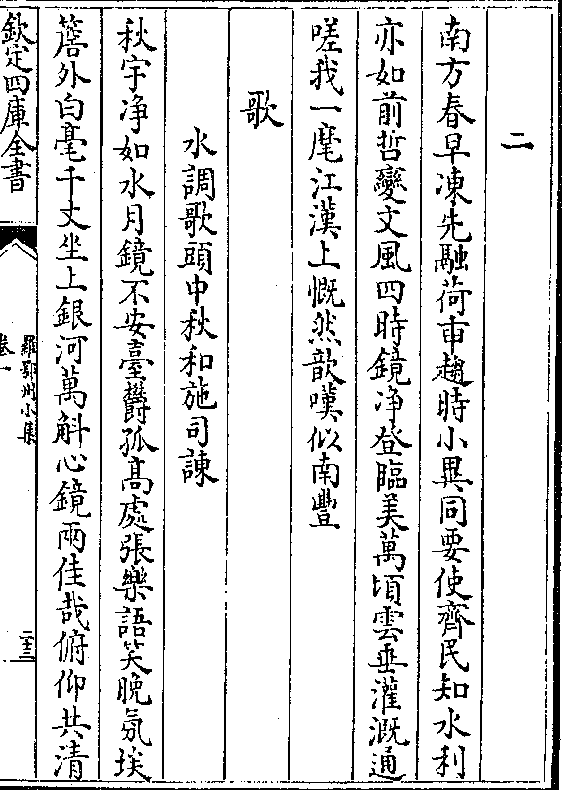 二
南方春早凍先融荷臿趨時小異同要使齊民知水利
亦如前哲變文風四時鏡淨登臨美萬頃雲垂灌溉通
嗟我一麾江漢上慨然歆嘆似南豐
歌
水調歌頭中秋和施司諫
秋宇淨如水月鏡不安臺欝孤高處張樂語笑晚氛埃
簷外白毫千丈坐上銀河萬斛心鏡兩佳哉俯仰共清
欽定四庫全書
羅鄂州小集
卷一
二十三